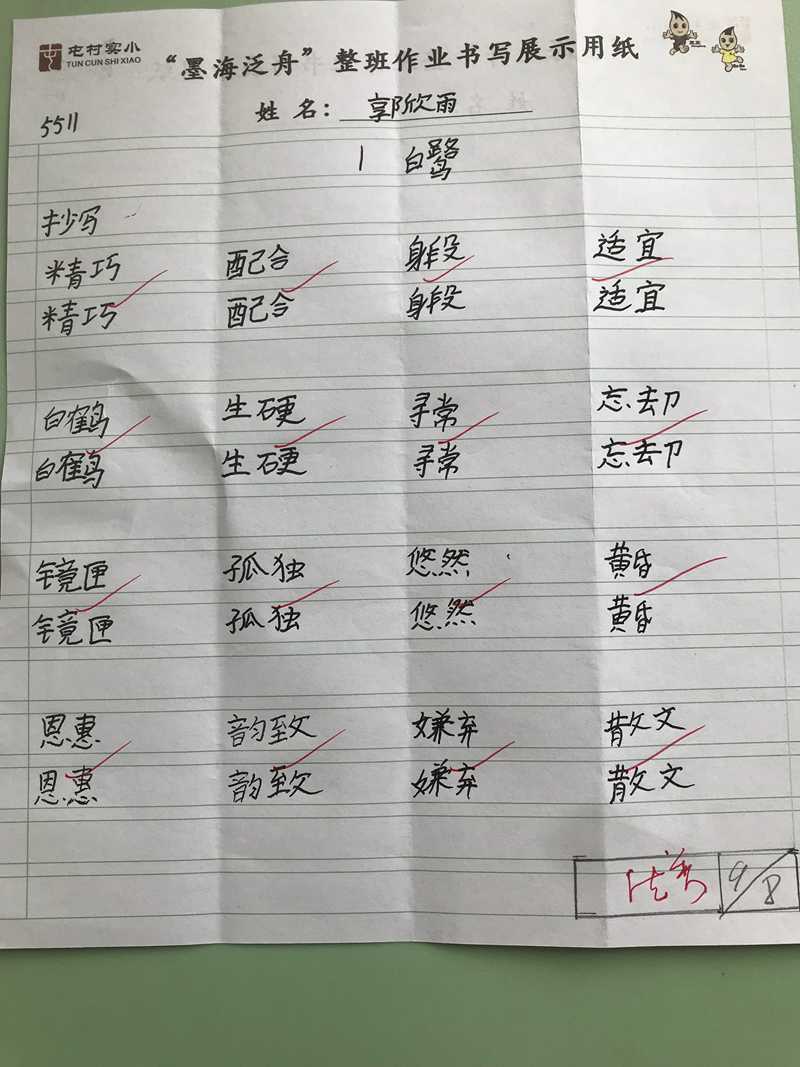 屯村实小
TUN CUN SHI XIAO
“墨海泛舟”整班作业书写展示用纸
姓 名：郭欣雨
5511
1 白鹭
抄写
精巧 配合 身段 适宜
精巧 配合 身段 适宜
白鹤 生硬 寻常 忘却
白鹤 生硬 寻常 忘却
镜匣 孤独 悠然 黄昏
镜匣 孤独 悠然 黄昏
恩惠 韵致 嫌弃 散文
恩惠 韵致 嫌弃 散文
优秀 9/8